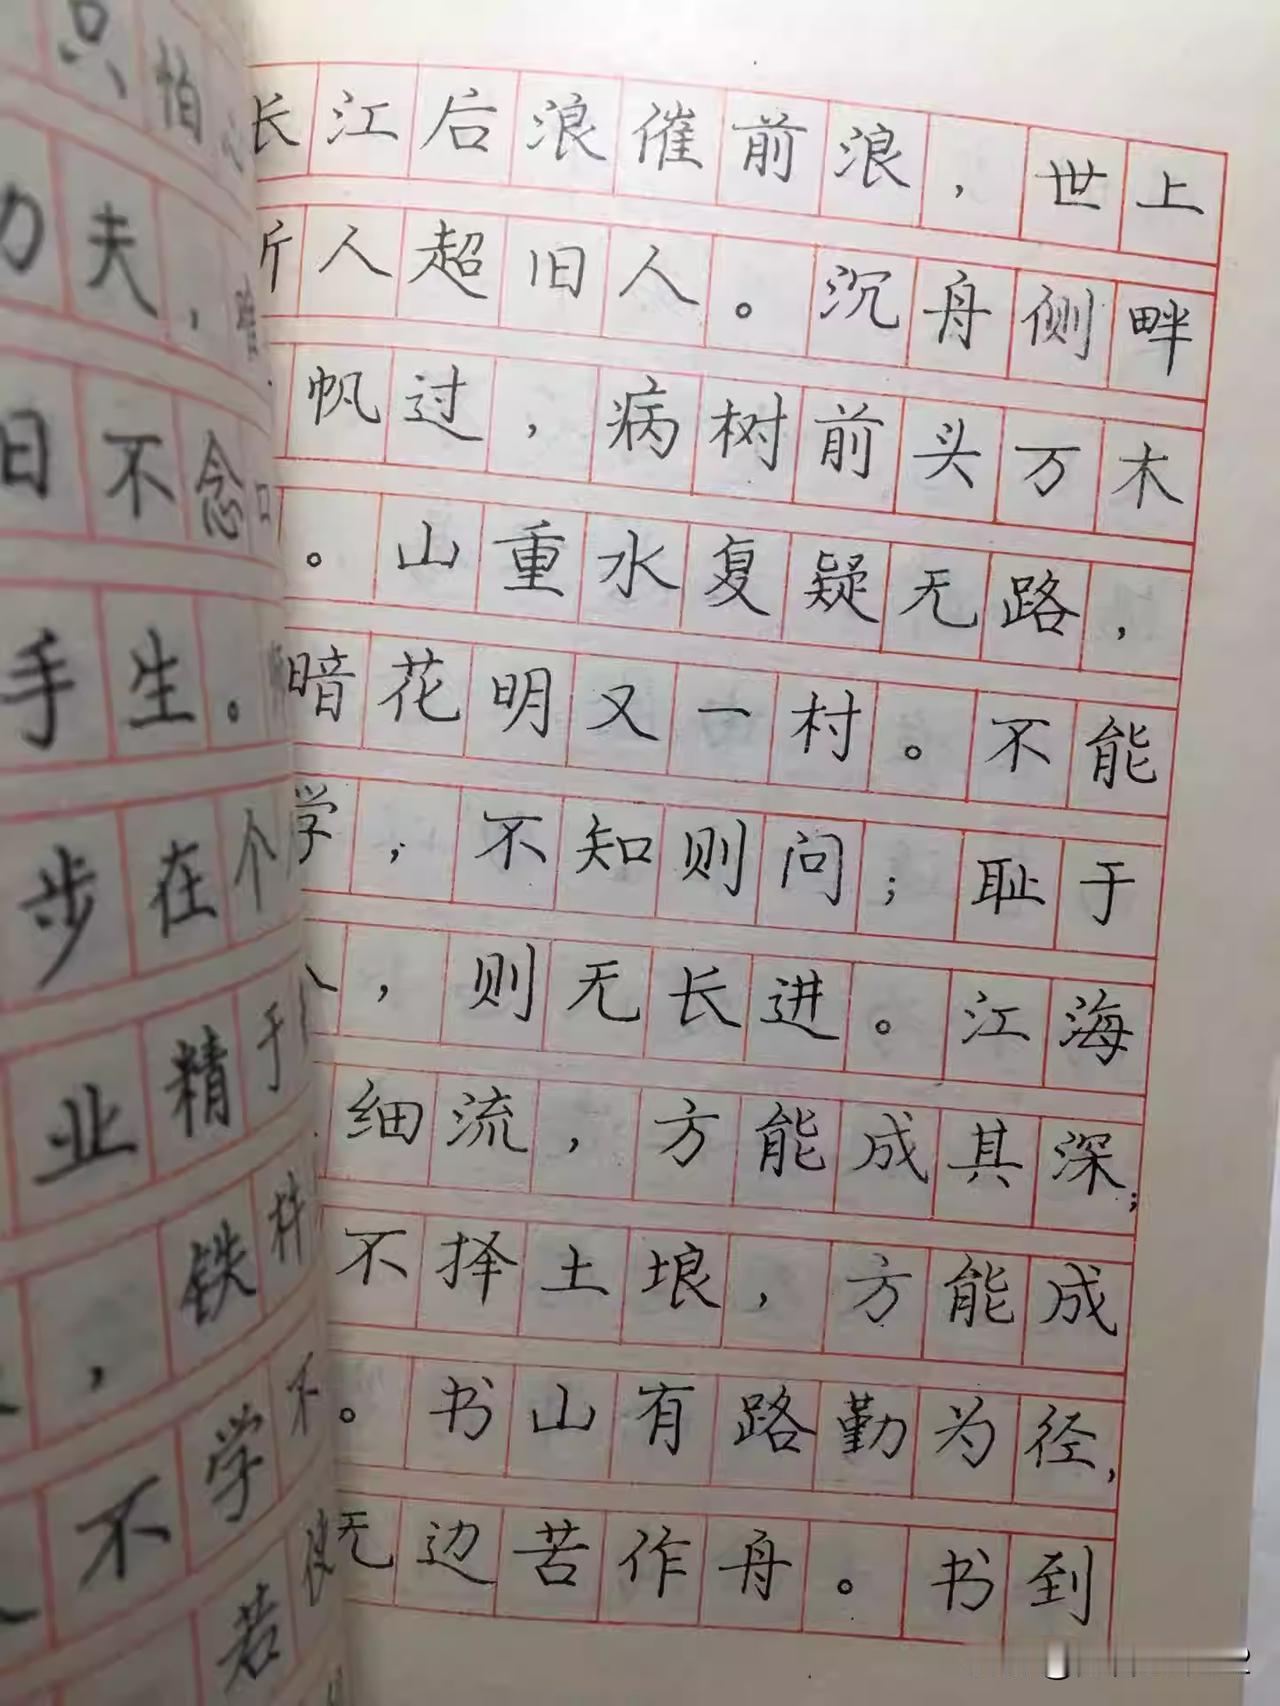 只怕心
功夫，唯
日不念口
手生。
步在个
业精于
，铁杵
不学不
若
长江后浪催前浪，世上
新人超旧人。沉舟侧畔
帆过，病树前头万木
。山重水复疑无路，
暗花明又一村。不能
学，不知则问；耻于
人，则无长进。江海
细流，方能成其深；
不择土埌，方能成
。书山有路勤为径，
无边苦作舟。书到